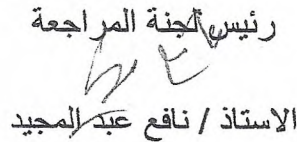 رئيس لجنة المراجعة
الاستاذ / نافع عبد المجيد